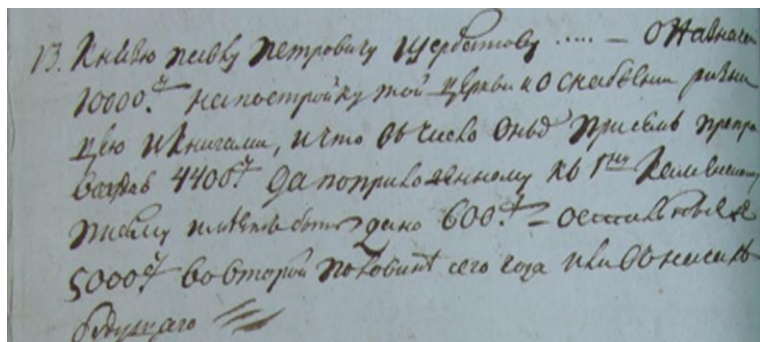 13. Князю павлу Петровичу Щербатову ..... — О назначен
10000.р на постройку той церкви и о снабдении ризни
цею и книгами, и что въ число оныхъ присемъ препро
вождая 4400р да поприложенному къ Гну Каменскому
письму имѣетъ быть дано 600.р — остальные же
5000р во второй половинѣ сего года или въ началѣ
будущаго